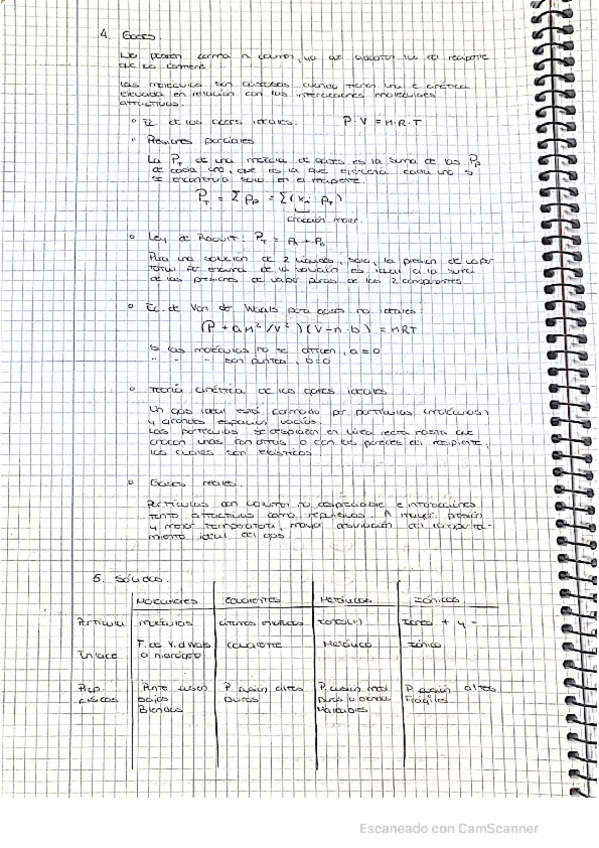 4. Gases.
No poseen forma ni volumen, ya que adoptan los del recipiente
que los contiene.
Las moléculas son gaseosas cuando tienen una E cinética
elevada en relación con las interacciones moleculares
atractivas.
Ec. de los gases ideales: P·V = n·R·T
Presiones parciales
La PT de una mezcla de gases es la suma de las Pp
de cada uno, que es la que ejercería cada uno si
se encontrara solo en el recipiente.
PT = Σ Pp = Σ(xi · PT)
fracción molar.
Ley de Raoult: PT = PA + PB
Para una solución de 2 líquidos, la presión de vapor
total por encima de la solución es igual a la suma
de las presiones de vapor puras de los 2 componentes
Ec. de Van der Waals para gases no ideales:
(P + an²/V²)(V-n·b) = nRT
las moléculas no se atraen, a=0
" " " son puntos, b=0
Teoría cinética de los gases ideales
Un gas ideal está formado por partículas (moléculas)
y grandes espacios vacíos.
Las partículas se desplazan en línea recta hasta que
chocan unas con otras o con las paredes del recipiente,
los cuales son elásticos.
Gases reales.
Partículas con volumen no despreciable e interacciones
tanto atractivas como repulsivas. A mayor presión
y menor temperatura, mayor desviación del comporta-
miento ideal del gas.
5. Sólidos.
Moleculares Covalentes Metálicos Iónicos
Partícula moléculas átomos iones + y -
F. de V. d Waals Covalente Metálico Iónico
Enlace o hidrógeno
Prop. Punto fusión P. fusión altos P. fusión P. fusión altos
físicos bajos Duros Frágiles
Blandos Maleables
Escaneado con CamScanner